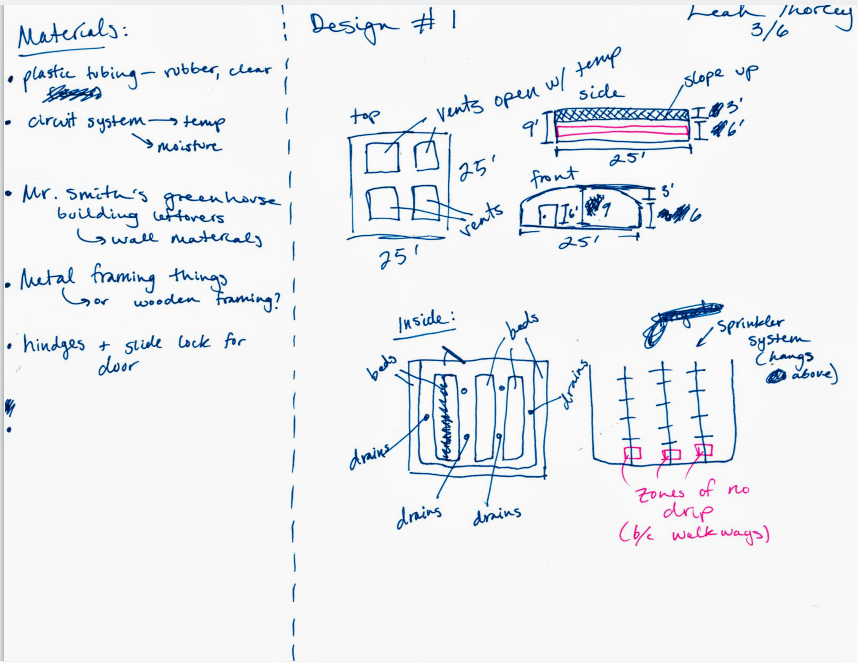 Materials:
• plastic tubing – rubber, clear
• circuit system → temp
↘ moisture
• Mr. Smith's greenhouse
building leftovers
↳ wall materials
• Metal framing things
↳ or wooden framing?
• hindges + slide lock for
door
•
Design # 1
Leah Thorley
3/6
top
vents open w/ temp
25'
vents
25'
side
slope up
9'
3'
6'
25'
front
3'
6'
9
6
25'
Inside:
beds
beds
drains
drains
drains
drains
sprinkler
system
(hangs
above)
zones of no
drip
(b/c walkways)